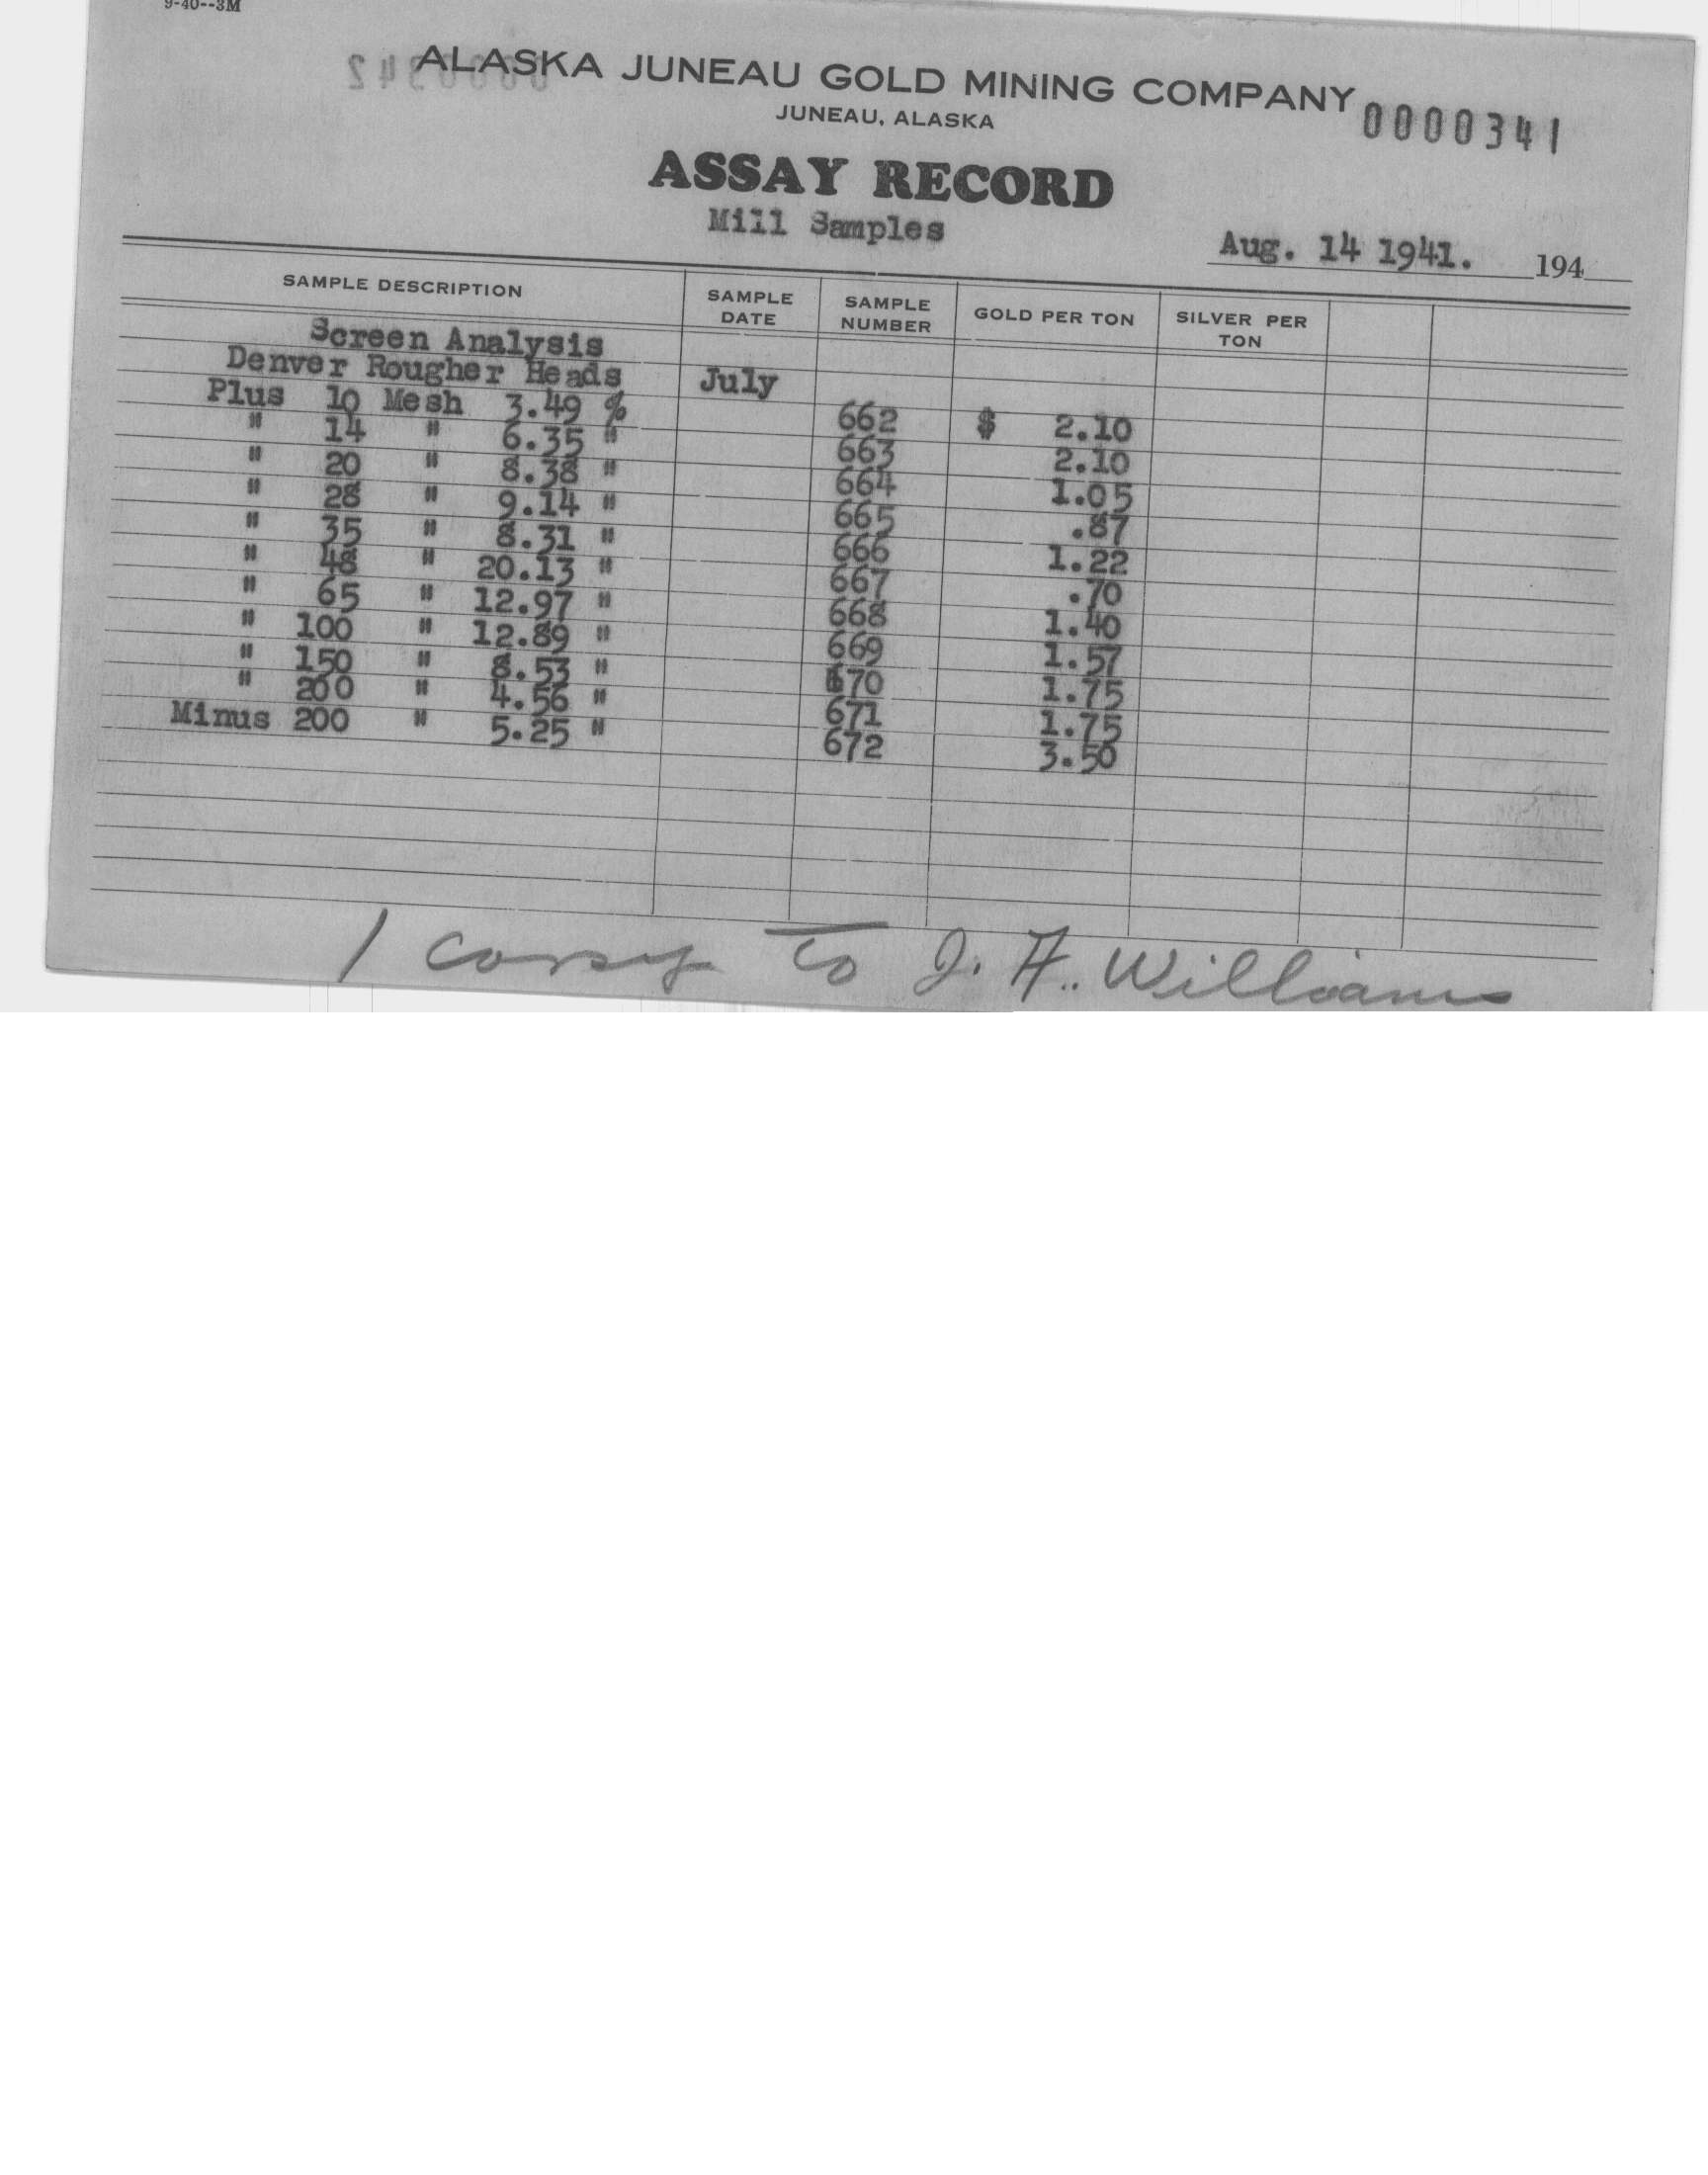 9-40--3M
ALASKA JUNEAU GOLD MINING COMPANY
0000341
JUNEAU, ALASKA
ASSAY RECORD
Mill Samples
Aug. 14 1941. 194
SAMPLE DESCRIPTION SAMPLE DATE SAMPLE NUMBER GOLD PER TON SILVER PER TON
Screen Analysis
Denver Rougher Heads July
Plus 10 Mesh 3.49 % 662 $ 2.10
" 14 " 6.35 " 663 2.10
" 20 " 8.38 " 664 1.05
" 28 " 9.14 " 665 .87
" 35 " 8.31 " 666 1.22
" 48 " 20.13 " 667 .70
" 65 " 12.97 " 668 1.40
" 100 " 12.89 " 669 1.57
" 150 " 8.53 " 670 1.75
" 200 " 4.56 " 671 1.75
Minus 200 " 5.25 " 672 3.50
1 copy to J. A. Williams